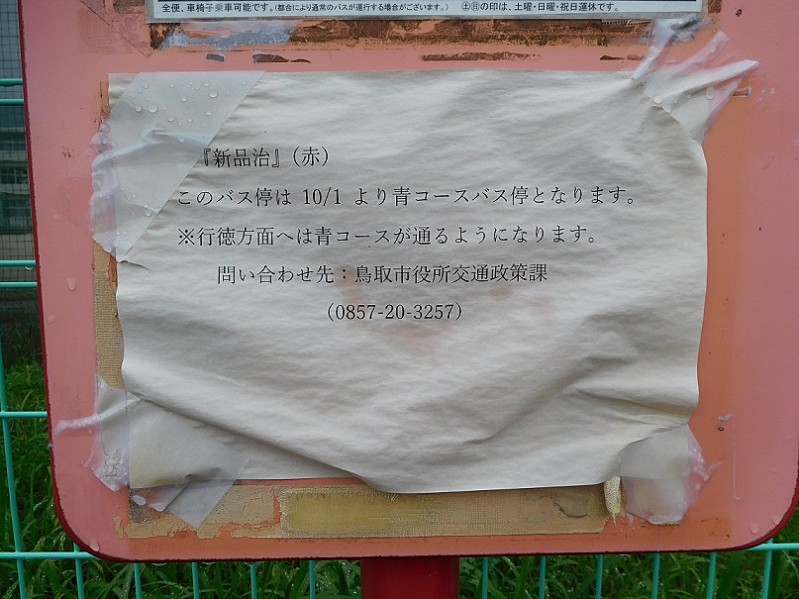 全便、車椅子乗車可能です。（都合により通常のバスが運行する場合がございます。） ㊏㊐の印は、土曜・日曜・祝日運休です。
『新品治』（赤）
このバス停は 10/1 より青コースバス停となります。
※行徳方面へは青コースが通るようになります。
問い合わせ先：鳥取市役所交通政策課
（0857-20-3257）